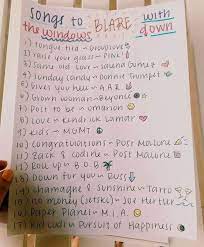 Songs to BLARE with
the windows down
1) tongue tied ~ Grouplove
2) raise your glass ~ P!nk
3) Same old love ~ Selena Gomez
4) Sunday Candy ~ Donnie Trumpet
5) Gives you hell ~ A.A.R.
6) Grown woman ~ Beyoncé
7) Post to be ~ Omarion
8) Love ~ Kendrick Lamar
9) Kids ~ MGMT
10) Congratulations ~ Post Malone
11) Zack & Codine ~ Post Malone
12) Roll up ~ B.O.B
13) Down for you ~
14) Champagne & Sunshine ~ Tarro
15) no money
16) Paper Planes ~ M.I.A.
17) Kid Cudi ~ Pursuit of Happiness